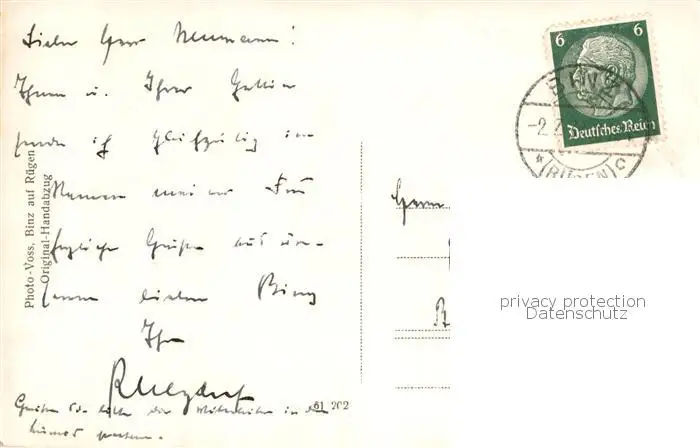 Lieber Herr Neumann!
Ihnen u. Ihrer Gattin
sende ich gleichzeitig im
Namen meiner Frau
herzliche Grüße aus un-
serem lieben Binz
Ihr
Grüßen Sie bitte die Mitarbeiter in der
Photo-Voss, Binz auf Rügen
Original-Handabzug
61 202
6 6
Deutsches Reich
BINZ
-2.
(RÜGEN) c
Herrn
privacy protection
Datenschutz